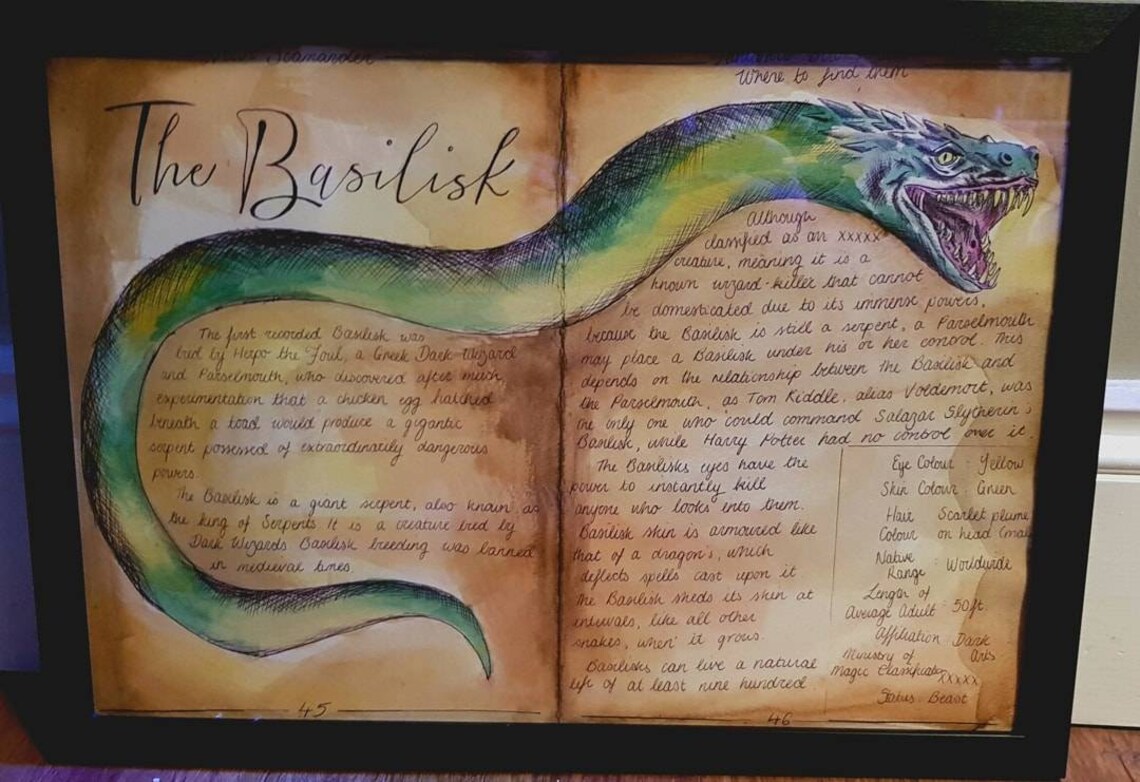 Scamander
Where to find them
The Basilisk
The first recorded Basilisk was
bred by Herpo the Foul, a Greek Dark Wizard
and Parselmouth, who discovered after much
experimentation that a chicken egg hatched
beneath a toad would produce a gigantic
serpent possessed of extraordinarily dangerous
powers.
The Basilisk is a giant serpent, also known as
the King of Serpents It is a creature bred by
Dark Wizards Basilisk breeding was banned
in medieval times.
45
Although
classified as an XXXXX
creature, meaning it is a
known wizard-killer that cannot
be domesticated due to its immense powers,
because the Basilisk is still a serpent, a Parselmouth
may place a Basilisk under his or her control. This
depends on the relationship between the Basilisk and
the Parselmouth, as Tom Riddle, alias Voldemort, was
the only one who could command Salazar Slytherin's
Basilisk, while Harry Potter had no control over it.
The Basilisks eyes have the
power to instantly kill
anyone who looks into them.
Basilisk skin is armoured like
that of a dragon's, which
deflects spells cast upon it
The Basilisk sheds its skin at
intervals, like all other
snakes, when it grows.
Basilisks can live a natural
life of at least nine hundred
Eye Colour : Yellow
Skin Colour : Green
Hair Scarlet plume
Colour on head (ma
Native
Range : Worldwide
Length of
Average Adult : 50ft
Affiliation Dark
Arts
Ministry of
Magic Classification XXXXX
Status Beast
46